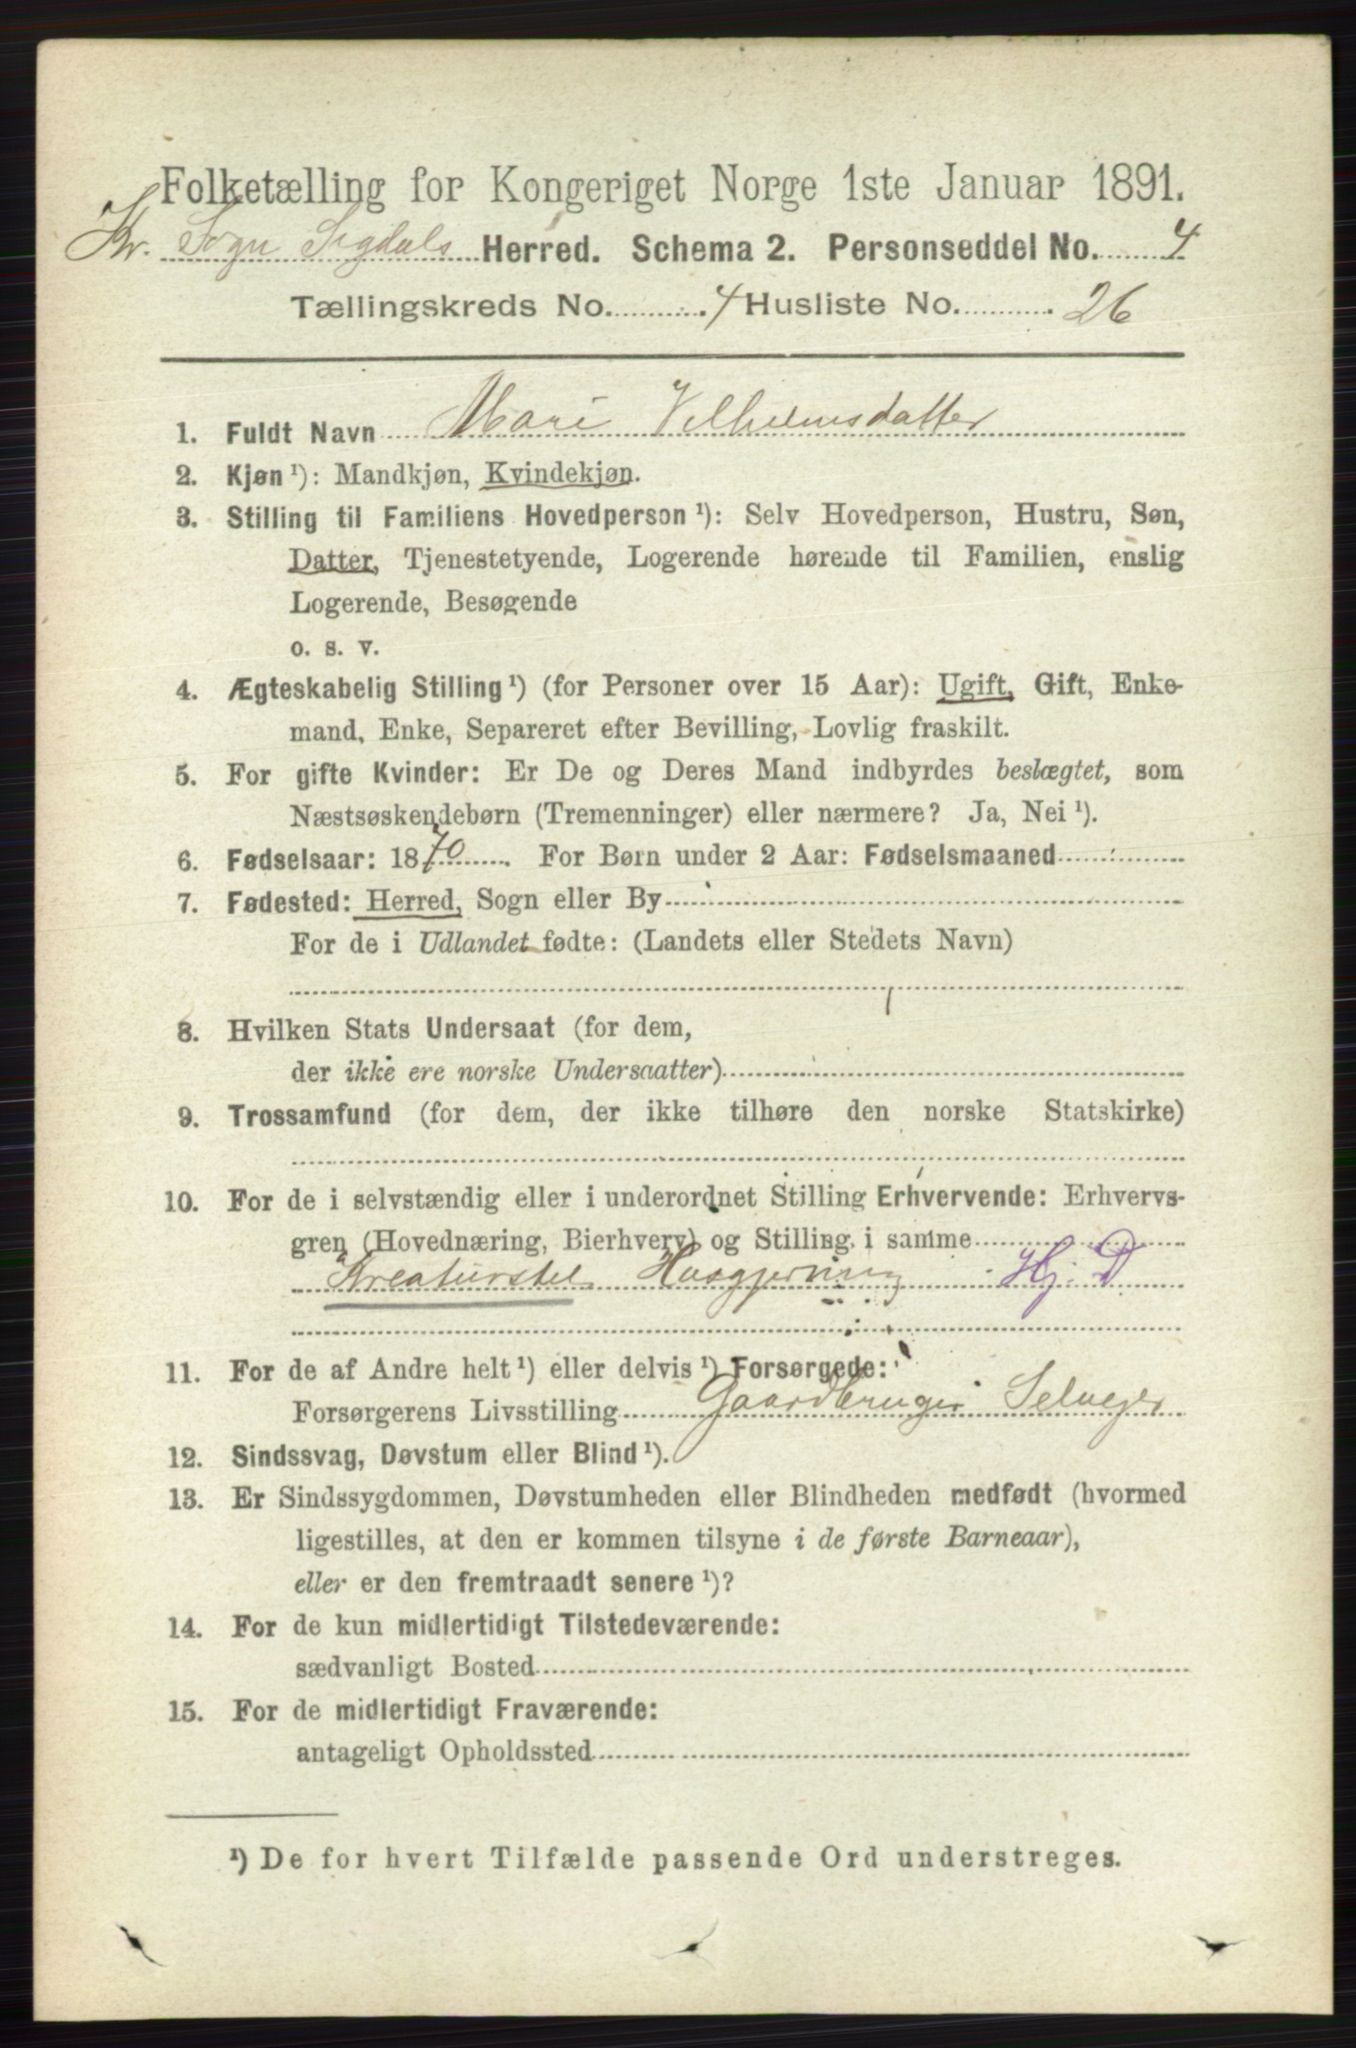 Folketælling for Kongeriget Norge 1ste Januar 1891.
Kr. Sogn Sigdals Herred. Schema 2. Personseddel No. 4
Tællingskreds No. 4 Husliste No. 26
1. Fuldt Navn Mari Vilhelmsdatter
2. Kjøn ¹): Mandkjøn, Kvindekjøn.
3. Stilling til Familiens Hovedperson ¹): Selv Hovedperson, Hustru, Søn,
Datter, Tjenestetyende, Logerende hørende til Familien, enslig
Logerende, Besøgende
o. s. v.
4. Ægteskabelig Stilling ¹) (for Personer over 15 Aar): Ugift, Gift, Enke-
mand, Enke, Separeret efter Bevilling, Lovlig fraskilt.
5. For gifte Kvinder: Er De og Deres Mand indbyrdes beslægtet, som
Næstsøskendebørn (Tremenninger) eller nærmere? Ja, Nei ¹).
6. Fødselsaar: 1870. For Børn under 2 Aar: Fødselsmaaned
7. Fødested: Herred, Sogn eller By
For de i Udlandet fødte: (Landets eller Stedets Navn)
8. Hvilken Stats Undersaat (for dem,
der ikke ere norske Undersaatter)
9. Trossamfund (for dem, der ikke tilhøre den norske Statskirke)
10. For de i selvstændig eller i underordnet Stilling Erhvervende: Erhvervs-
gren (Hovednæring, Bierhverv) og Stilling i samme
Kreaturstel Husgjerning Hj. D
11. For de af Andre helt ¹) eller delvis ¹) Forsørgede:
Forsørgerens Livsstilling Gaardbruger Selveger
12. Sindssvag, Døvstum eller Blind ¹).
13. Er Sindssygdommen, Døvstumheden eller Blindheden medfødt (hvormed
ligestilles, at den er kommen tilsyne i de første Barneaar),
eller er den fremtraadt senere ¹)?
14. For de kun midlertidigt Tilstedeværende:
sædvanligt Bosted
15. For de midlertidigt Fraværende:
antageligt Opholdssted
¹) De for hvert Tilfælde passende Ord understreges.